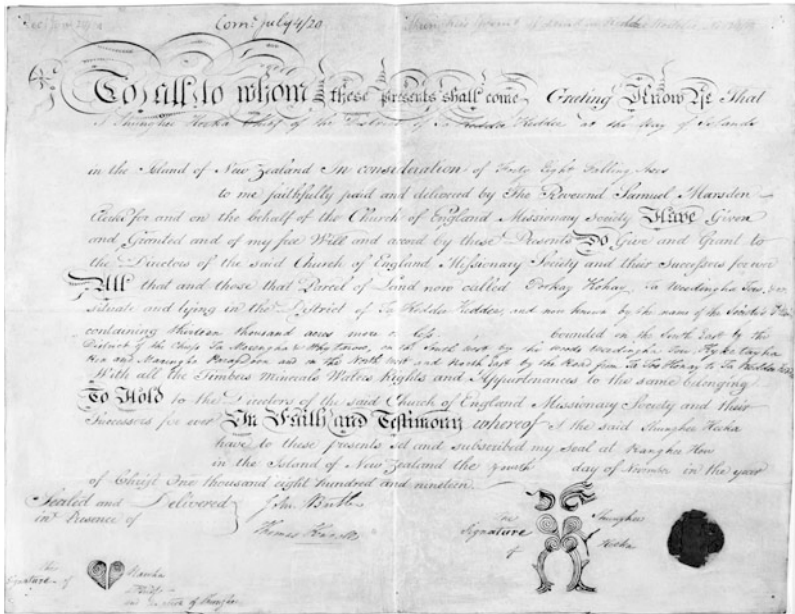 Com: July 4/20
To all to whom these presents shall come Greeting Know Ye That
I Shunghee Heeka Chief of the District of Ta Keddee Keddee at the Bay of Islands
in the Island of New Zealand In consideration of Forty Eight Falling Axes
to me faithfully paid and delivered by The Reverend Samuel Marsden
Clerk for and on the behalf of the Church of England Missionary Society Have Given
and Granted and of my free Will and accord by these Presents Do Give and Grant to
the Directors of the said Church of England Missionary Society and their Successors for ever
All that and those that Parcel of Land now called
situate and lying in the District of Ta Keddee Keddee, and now known by the name of the
containing thirteen thousand acres more or less. bounded on the South East by the
District of the Chiefs on the South West by the woods
and on the North West and North East by the Road from
With all the Timbers Minerals Waters Rights and Appurtenances to the same belonging
To Hold to the Directors of the said Church of England Missionary Society and their
Successors for ever In Faith and Testimony whereof I the said Shunghee Heeka
have to these presents set and subscribed my Seal at Ranghee Hoo
in the Island of New Zealand the day of November in the year
of Christ One thousand eight hundred and nineteen
Sealed and Delivered
in Presence of
John Butler
Thomas Kendall
The Signature of
Shunghee
Heeka
The Signature of